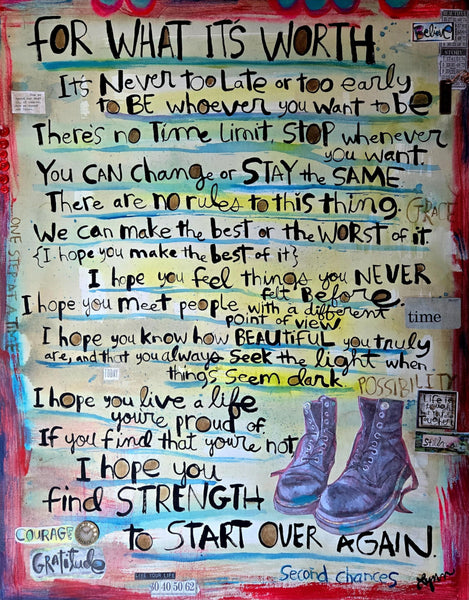 FOR WHAT IT'S WORTH
Believe
STORY
It's Never too Late or too early
to BE whoever you want to be
There's no Time Limit STOP whenever
you want.
You CAN Change or STAY the SAME
There are no rules to this thing.
GRACE
We can make the best or the WORST of it.
{I hope you make the best of it}
I hope you feel things you NEVER
felt Before.
I hope you meet people with a different
point of view.
time
I hope you know how BEAUTIFUL you truly
are, and that you always Seek the light when
things seem dark.
ONE STEP AT A TIME
POSSIBILITY
I hope you live a life
you're proud of.
If you find that you're not
I hope you
find STRENGTH
to START OVER AGAIN.
Life is
COURAGE
Gratitude
LIVE YOUR LIFE
30 40 50 62
Second chances